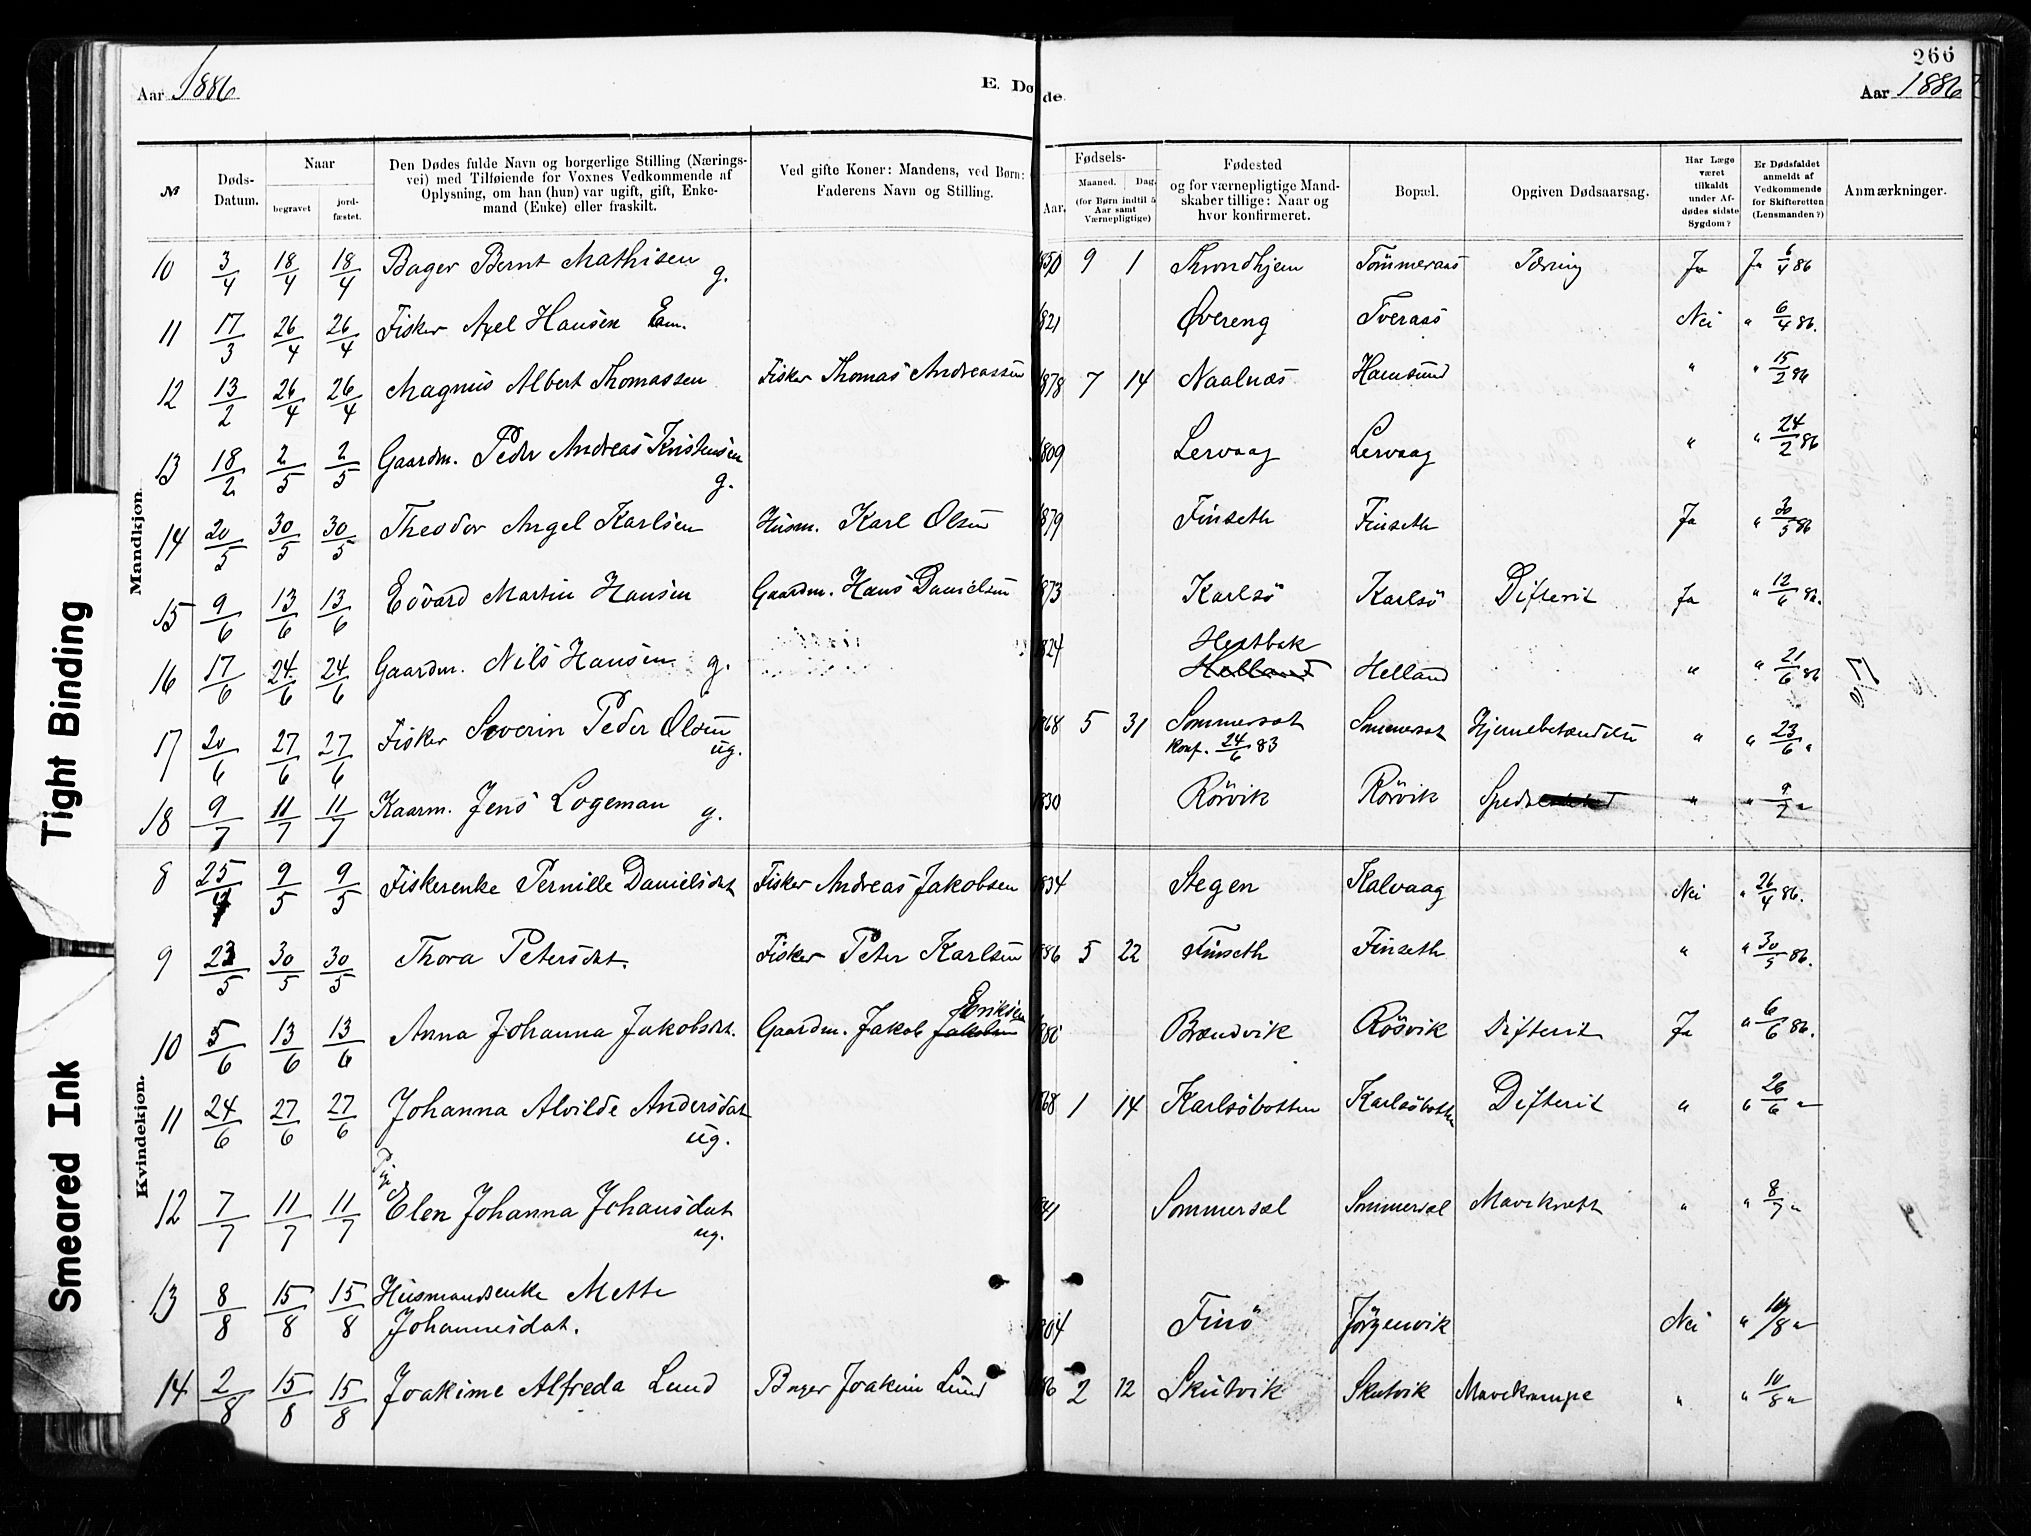 266
Aar 1886
E. Dø
de.
Aar 1886
№
Døds-Datum.
Naar
begravet
jord-fæstet.
Den Dødes fulde Navn og borgerlige Stilling (Nærings-
vei) med Tilføiende for Voxnes Vedkommende af
Oplysning, om han (hun) var ugift, gift, Enke-
mand (Enke) eller fraskilt.
Ved gifte Koner: Mandens, ved Børn:
Faderens Navn og Stilling.
Fødsels-
Aar.
Maaned.
Dag.
(for Børn indtil 5
Aar samt
Værnepligtige)
Fødested
og for værnepligtige Mand-
skaber tillige: Naar og
hvor konfirmeret.
Bopæl.
Opgiven Dødsaarsag.
Har Læge
været
tilkaldt
under Af-
dødes sidste
Sygdom?
Er Dødsfaldet
anmeldt af
Vedkommende
for Skifteretten
(Lensmanden?)
Anmærkninger.
Mandkjøn.
10 3/4 18/4 18/4 Bager Bernt Mathisen g. 1850 9 1 Throndhjem Tømmeraas Tæring Ja Ja 6/4 86
11 17/3 26/4 26/4 Fisker Axel Hansen Em. 1821 Øvereng Tveraas Nei " 6/4 86.
12 13/2 26/4 26/4 Magnus Albert Thomassen Fisker Thomas Andreassen 1878 7 14 Naalnæs Hamsund " " 15/2 86
13 18/2 2/5 2/5 Gaardm. Peder Andreas Kristensen g. 1809 Lervaag Lervaag " " 24/2 86
14 20/5 30/5 30/5 Theodor Angel Karlsen Husm. Karl Olsen 1879 Finseth Finseth Ja " 30/5 86
15 9/6 13/6 13/6 Edvard Martin Hansen Gaardm. Hans Danielsen 1873 Karlsö Karlsö Difterit Ja " 12/6 86.
16 17/6 24/6 24/6 Gaardm. Nils Hansen g. 1824 Hestbak Helland Helland " " 21/6 86
17 20/6 27/6 27/6 Fisker Severin Peder Olsen ug. 1868 5 31 Sommerset Konf. 24/6 83 Sommerset Hjernebetændelse " " 23/6 "
18 9/7 11/7 11/7 Kaarm. Jens Logeman g. 1830 Rörvik Rörvik " " 9/7 "
Kvindekjøn.
8 25/4 9/5 9/5 Fiskerenke Pernille Danielsdat Fisker Andreas Jakobsen 1834 Stegen Kalvaag Nei " 26/4 86.
9 23/5 30/5 30/5 Thora Petersdat. Fisker Peter Karlsen 1886 5 22 Finseth Finseth " " 30/5 86.
10 5/6 13/6 13/6 Anna Johanna Jakobsdat. Gaardm. Jakob Jakobsen Eriksen Brændvik Rösvik Difterit Ja " 6/6 86.
11 24/6 27/6 27/6 Johanna Alvilde Andersdat ug. 1868 1 14 Karlsöbotten Karlsöbotten Difterit " " 26/6 "
12 7/7 11/7 11/7 Pige Elen Johanna Johansdat ug. Sommersel Sommersel " " 8/7 "
13 8/8 15/8 15/8 Husmandsenke Mette
Johannesdat. 1804 Finö Jörgenvik Nei " 10/8 "
14 2/8 15/8 15/8 Joakime Alfreda Lund Bager Joakim Lund 86 2 12 Skutvik Skutvik Mavekrampe " " 10/8 "
Tight Binding
Smeared Ink